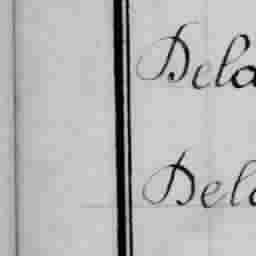 Dela
Dela